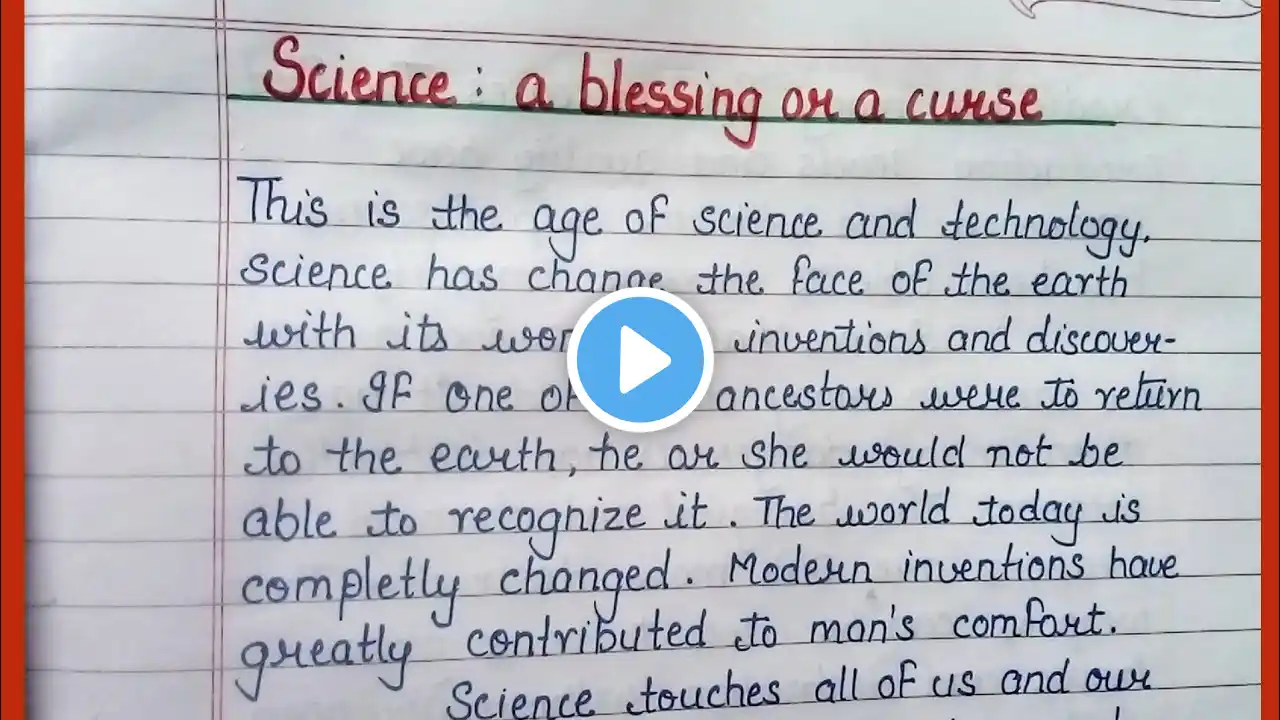 Science : a blessing or a curse
This is the age of science and technology.
Science has change the face of the earth
with its inventions and discover-
ies. If one of ancestors were to return
to the earth, he or she would not be
able to recognize it. The world today is
completly changed. Modern inventions have
greatly contributed to man's comfort.
Science touches all of us and our